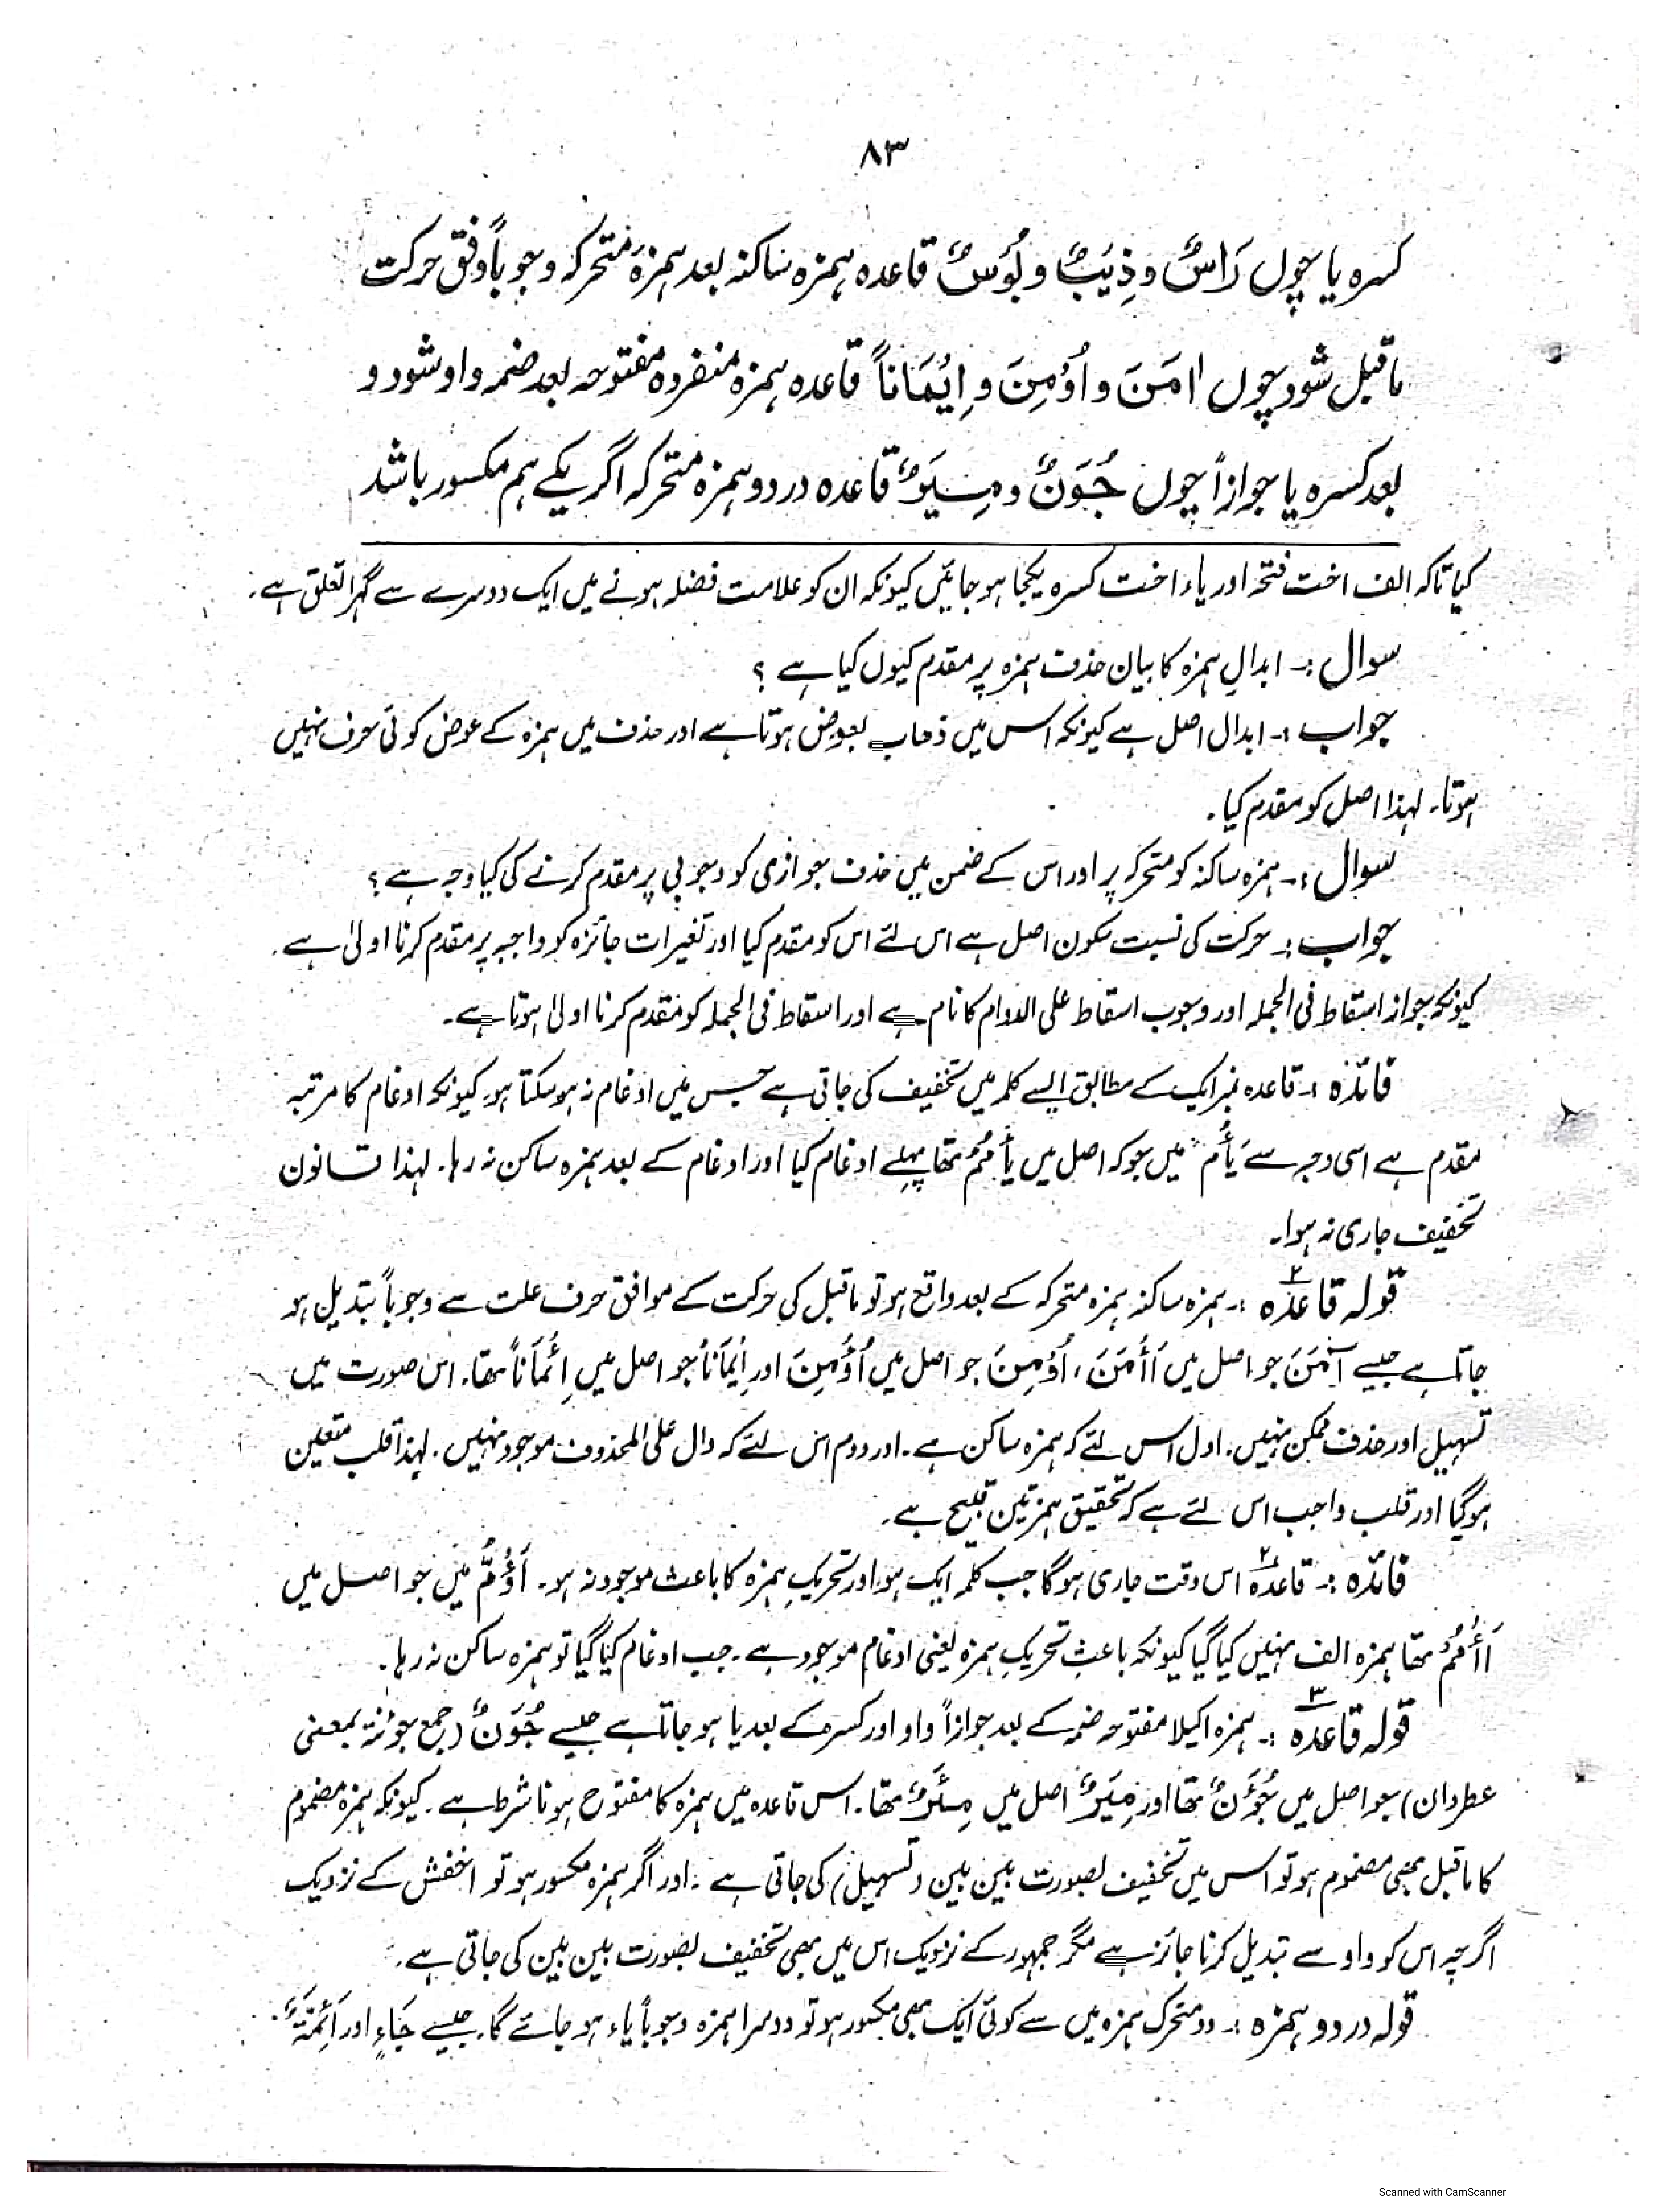 ۸۳
کسرہ یا چوں رَاسٌ و ذِیْبٌ و بُوْسٌ قاعدہ ہمزہ ساکنہ بعد ہمزہ متحرکہ وجوباً وفق حرکت
ماقبل شود چوں اٰمَنَ و اُوْمِنَ و اِیْمَاناً قاعدہ ہمزہ منفردہ مفتوحہ بعد ضمہ واو شود و
بعد کسرہ یا جوازاً چوں جُوَنٌ و مِیَرٌ قاعدہ در دو ہمزہ متحرکہ اگر یکے ہم مکسور باشد
کیا تاکہ الف اخت فتحہ اور یاء اخت کسرہ یکجا ہو جائیں کیونکہ ان کو علامت فضلہ ہونے میں ایک دوسرے سے گہرا تعلق ہے۔
سوال :۔ ابدالِ ہمزہ کا بیان حذف ہمزہ پر مقدم کیوں کیا ہے ؟
جواب :۔ ابدال اصل ہے کیونکہ اس میں ذھاب بعوض ہوتا ہے اور حذف میں ہمزہ کے عوض کوئی حرف نہیں
ہوتا۔ لہذا اصل کو مقدم کیا۔
سوال :۔ ہمزہ ساکنہ کو متحرکہ پر اور اس کے ضمن میں حذف جوازی کو وجوبی پر مقدم کرنے کی کیا وجہ ہے ؟
جواب :۔ حرکت کی نسبت سکون اصل ہے اس لئے اس کو مقدم کیا اور تغیرات جائزہ کو واجبہ پر مقدم کرنا اولیٰ ہے۔
کیونکہ جواز اسقاط فی الجملہ اور وجوب اسقاط علی الدوام کا نام ہے اور اسقاط فی الجملہ کو مقدم کرنا اولیٰ ہوتا ہے۔
فائدہ :۔ قاعدہ نمبر ایک کے مطابق ایسے کلمہ میں تخفیف کی جاتی ہے جس میں ادغام نہ ہو سکتا ہو کیونکہ ادغام کا مرتبہ
مقدم ہے اسی وجہ سے یَأُمُّ میں جو کہ اصل میں یَأْمُمُ تھا پہلے ادغام کیا اور ادغام کے بعد ہمزہ ساکن نہ رہا۔ لہذا قانون
تخفیف جاری نہ ہوا۔
قولہ قاعدہ ۲ :۔ ہمزہ ساکنہ ہمزہ متحرکہ کے بعد واقع ہو تو ماقبل کی حرکت کے موافق حرف علت سے وجوباً تبدیل ہو
جاتا ہے جیسے آمَنَ جو اصل میں أَأْمَنَ، اُوْمِنَ جو اصل میں اُؤْمِنَ اور اِیْمَاناً جو اصل میں اِئْمَاناً تھا۔ اس صورت میں
تسہیل اور حذف ممکن نہیں۔ اول اس لئے کہ ہمزہ ساکن ہے۔ اور دوم اس لئے کہ دال علی المحذوف موجود نہیں۔ لہذا قلب متعین
ہو گیا اور قلب واجب اس لئے ہے کہ تحقیق ہمزتین قبیح ہے۔
فائدہ :۔ قاعدہ ۲ اس وقت جاری ہو گا جب کلمہ ایک ہو اور تحریکِ ہمزہ کا باعث موجود نہ ہو۔ أَؤُمُّ میں جو اصل میں
أَأْمُمُ تھا ہمزہ الف نہیں کیا گیا کیونکہ باعثِ تحریکِ ہمزہ یعنی ادغام موجود ہے۔ جب ادغام کیا گیا تو ہمزہ ساکن نہ رہا۔
قولہ قاعدہ ۳ :۔ ہمزہ اکیلا مفتوحہ ضمہ کے بعد جوازاً واو اور کسرہ کے بعد یا ہو جاتا ہے جیسے جُوَنٌ (جمع جوئنۃ بمعنی
عطردان) جو اصل میں جُؤَنٌ تھا اور مِیَرٌ اصل میں مِئَرٌ تھا۔ اس قاعدہ میں ہمزہ کا مفتوح ہونا شرط ہے۔ کیونکہ ہمزہ مضموم
کا ماقبل بھی مضموم ہو تو اس میں تخفیف بصورت بین بین (تسہیل) کی جاتی ہے۔ اور اگر ہمزہ مکسور ہو تو اخفش کے نزدیک
اگرچہ اس کو واو سے تبدیل کرنا جائز ہے مگر جمہور کے نزدیک اس میں بھی تخفیف بصورت بین بین کی جاتی ہے۔
قولہ در دو ہمزہ :۔ دو متحرک ہمزہ میں سے کوئی ایک بھی مکسور ہو تو دوسرا ہمزہ وجوباً یاء ہو جائے گا۔ جیسے جَاءٍ اور أَئِمَّةٌ
Scanned with CamScanner